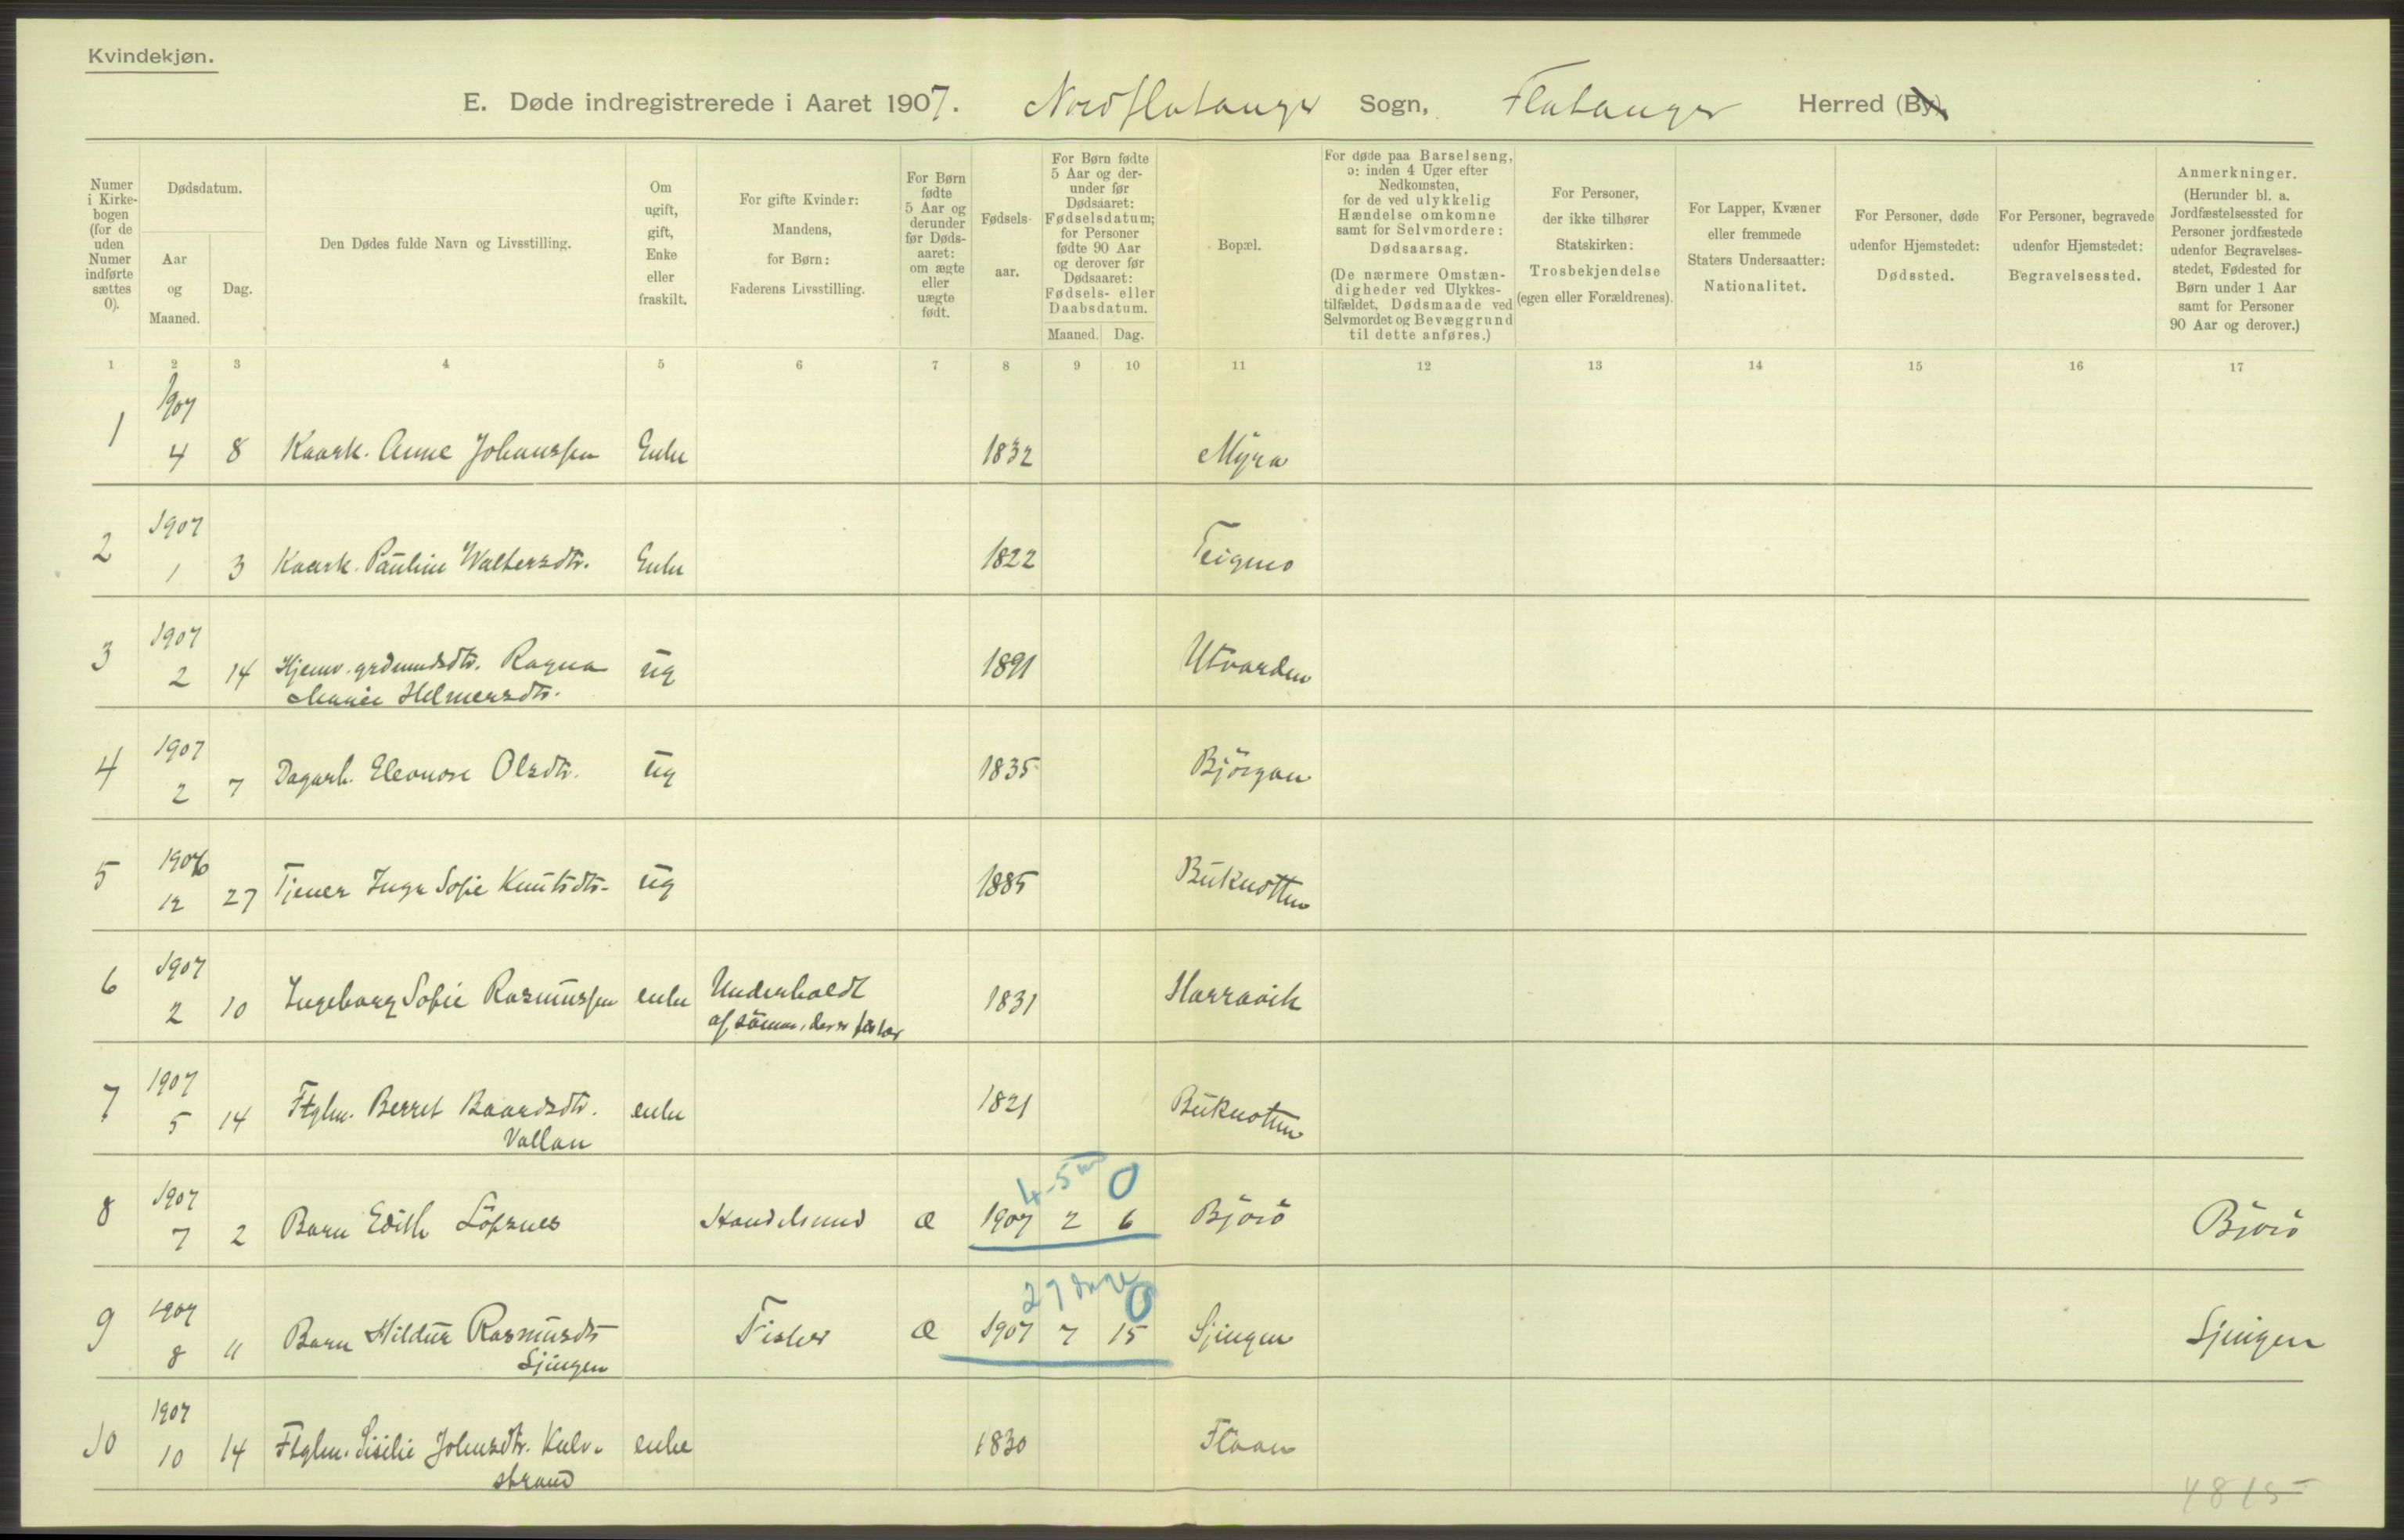 Kvindekjøn.
E. Døde indregistrerede i Aaret 1907. Nordflatanger Sogn, Flatanger Herred (By).
Numer i Kirkebogen (for de uden Numer indførte sættes 0).
Dødsdatum.
Aar og Maaned.
Dag.
Den Dødes fulde Navn og Livsstilling.
Om ugift, gift, Enke eller fraskilt.
For gifte Kvinder: Mandens, for Børn: Faderens Livsstilling.
For Børn fødte 5 Aar og derunder før Dødsaaret: om ægte eller uægte født.
Fødselsaar.
For Børn fødte 5 Aar og derunder før Dødsaaret: Fødselsdatum; for Personer fødte 90 Aar og derover før Dødsaaret: Fødsels- eller Daabsdatum.
Maaned. Dag.
Bopæl.
For døde paa Barselseng, ɔ: inden 4 Uger efter Nedkomsten, for de ved ulykkelig Hændelse omkomne samt for Selvmordere: Dødsaarsag.
(De nærmere Omstændigheder ved Ulykkestilfældet, Dødsmaade ved Selvmordet og Bevæggrund til dette anføres.)
For Personer, der ikke tilhører Statskirken: Trosbekjendelse (egen eller Forældrenes).
For Lapper, Kvæner eller fremmede Staters Undersaatter: Nationalitet.
For Personer, døde udenfor Hjemstedet: Dødssted.
For Personer, begravede udenfor Hjemstedet: Begravelsessted.
Anmerkninger.
(Herunder bl. a. Jordfæstelsessted for Personer jordfæstede udenfor Begravelsesstedet, Fødested for Børn under 1 Aar samt for Personer 90 Aar og derover.)
1 2 3 4 5 6 7 8 9 10 11 12 13 14 15 16 17
1 1907 4 8 Kaark. Anne Johanssen Enke 1832 Myra
2 1907 1 3 Kaark. Pauline Waltersdtr. Enke 1822 Teigmo
3 1907 2 14 Hjemv. grdmandsdtr. Ragna ug 1891 Utvorden
Marie Helmersdtr.
4 1907 2 7 Dagarb. Eleonore Olsdtr. ug 1835 Björgan
5 1906 12 27 Tjener Inga Sofie Knutsdtr. ug 1885 Buknotten
6 1907 2 10 Ingeborg Sofie Rasmussen enke Underholdt 1831 Harravik
af
7 1907 5 14 Ftglm. Berret Baardsdtr. enke 1821 Buknotten
Vallan
4-5 0
8 1907 7 2 Barn Edith Löfsnes Handelsmd Æ 1907 2 6 Björö Björö
27 dage 0
9 1907 8 11 Barn Hildur Rasmusdtr Fisker Æ 1907 7 15 Sjingen Sjingen
Sjingen
10 1907 10 14 Ftglm. Sisilie Johnsdtr. Kalv- enke 1830 Flaan
strand
4815